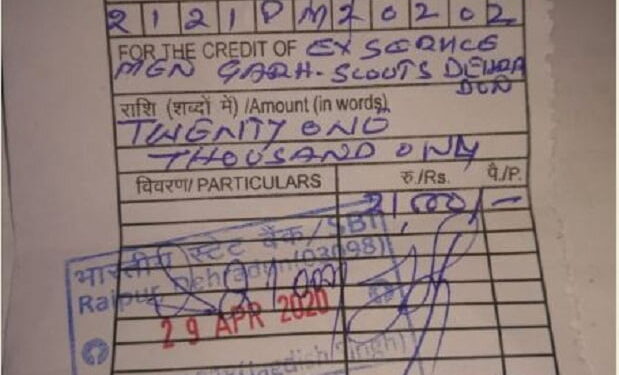 2121PM20202
FOR THE CREDIT OF EX SERVICE
MEN GARH-SCOUTS DEHRA
DUN
राशि (शब्दों में) /Amount (in words)
TWENTY ONE
THOUSAND ONLY
विवरण/ PARTICULARS रु./Rs. पै./P.
21,000/-
भारतीय स्टेट बैंक/SBI
Raipur, Dehradun(03098)
29 APR 2020